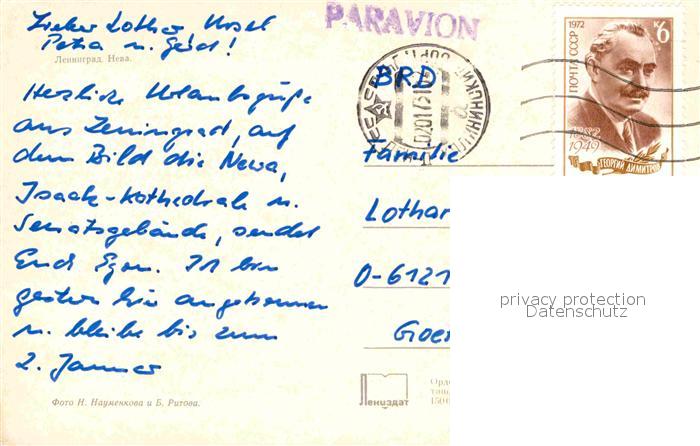 Lieber Lothar Ursel
Petra u. Gerd!
Ленинград. Нева.
Herzliche Urlaubsgrüße
aus Leningrad, auf
dem Bild die Newa,
Isaak-Kathedrale u.
Senatsgebäude, sendet
Euch Egon. Ich bin
gestern hier angekommen
u. bleibe bis zum
2. Januar
Фото Н. Науменкова и Б. Ритова.
PARAVION
BRD
Familie
Lothar
D-6121
Лениздат
1972
6 к
ПОЧТА СССР
1882
1949
ГЕОРГИЙ ДИМИТРОВ
privacy protection
Datenschutz